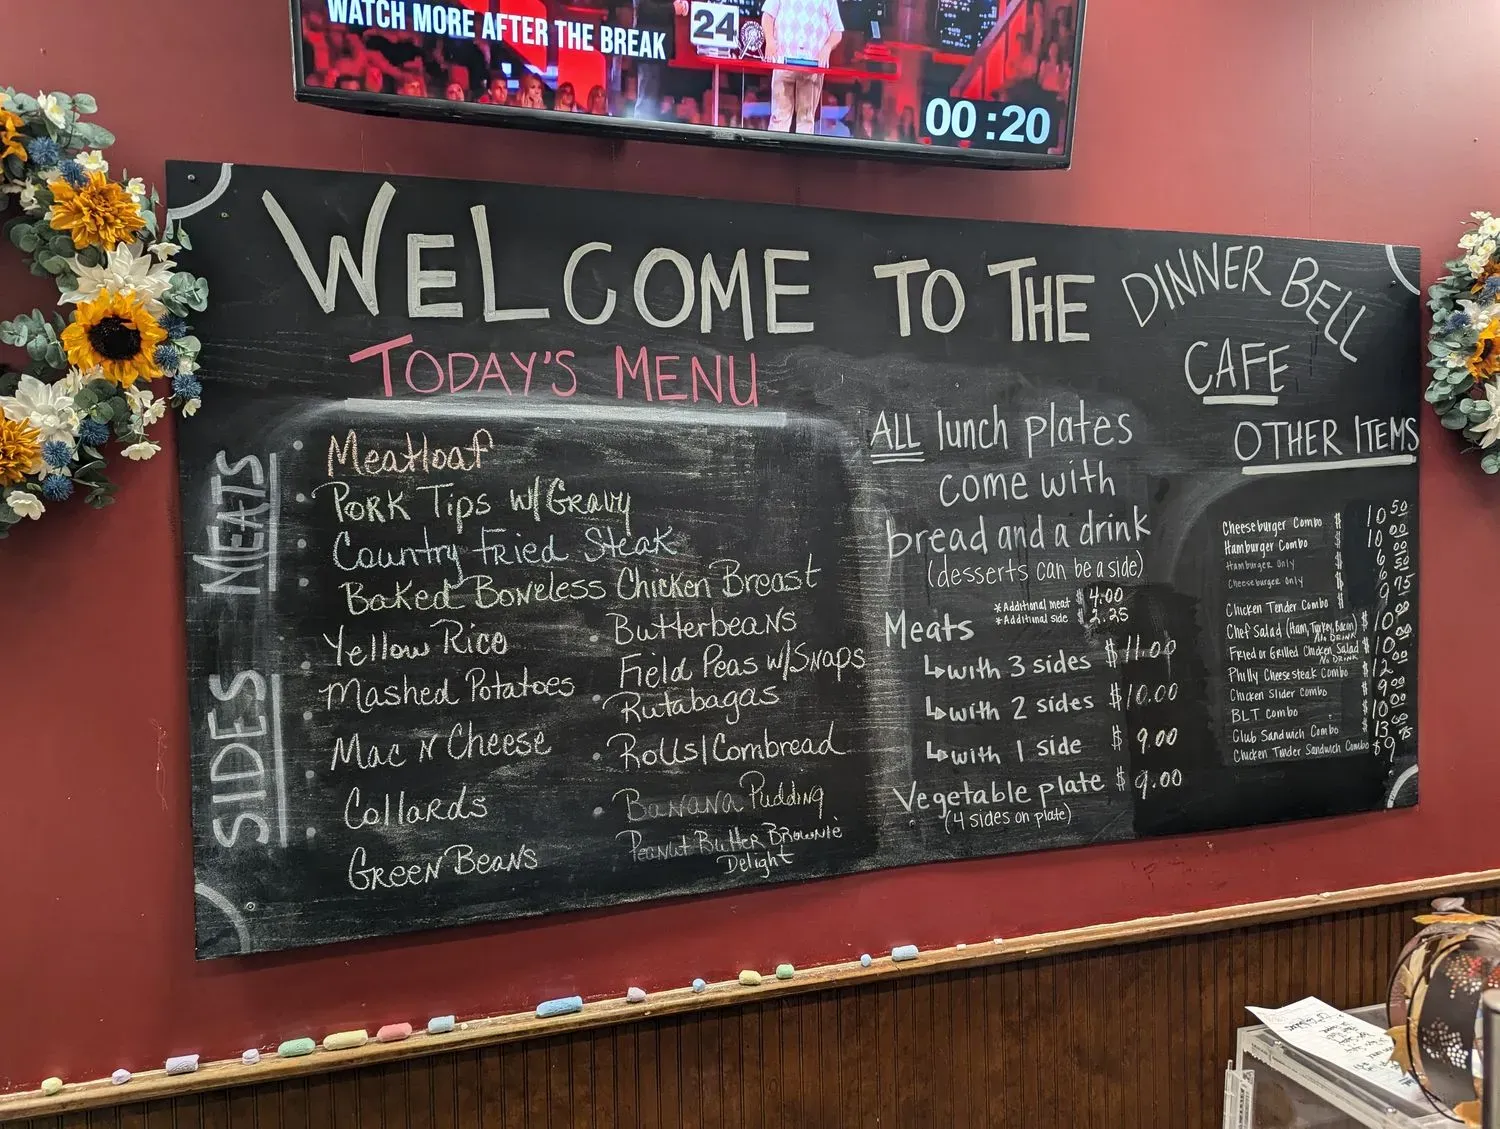 WATCH MORE AFTER THE BREAK
24
00:20
WELCOME TO THE DINNER BELL
CAFE
TODAY'S MENU
MEATS
Meatloaf
Pork Tips w/Gravy
Country Fried Steak
Baked Boneless Chicken Breast
SIDES
Yellow Rice
Mashed Potatoes
Mac N Cheese
Collards
Green Beans
Butterbeans
Field Peas w/Snaps
Rutabagas
Rolls/Cornbread
Banana Pudding
Peanut Butter Brownie
Delight
ALL lunch plates
come with
bread and a drink
(desserts can be a side)
Meats
*Additional meat $4.00
*Additional side $2.25
with 3 sides $11.00
with 2 sides $10.00
with 1 side $9.00
Vegetable plate $9.00
(4 sides on plate)
OTHER ITEMS
Cheeseburger Combo $10.50
Hamburger Combo $10.00
Hamburger Only $6.00
Cheeseburger Only $6.50
Chicken Tender Combo $9.75
Chef Salad (Ham, Turkey, Bacon) $10.00
No Drink
Fried or Grilled Chicken Salad $10.00
No Drink
Philly Cheesesteak Combo $12.00
Chicken Slider Combo $9.00
BLT Combo $10.00
Club Sandwich Combo $13.00
Chicken Tender Sandwich Combo $9